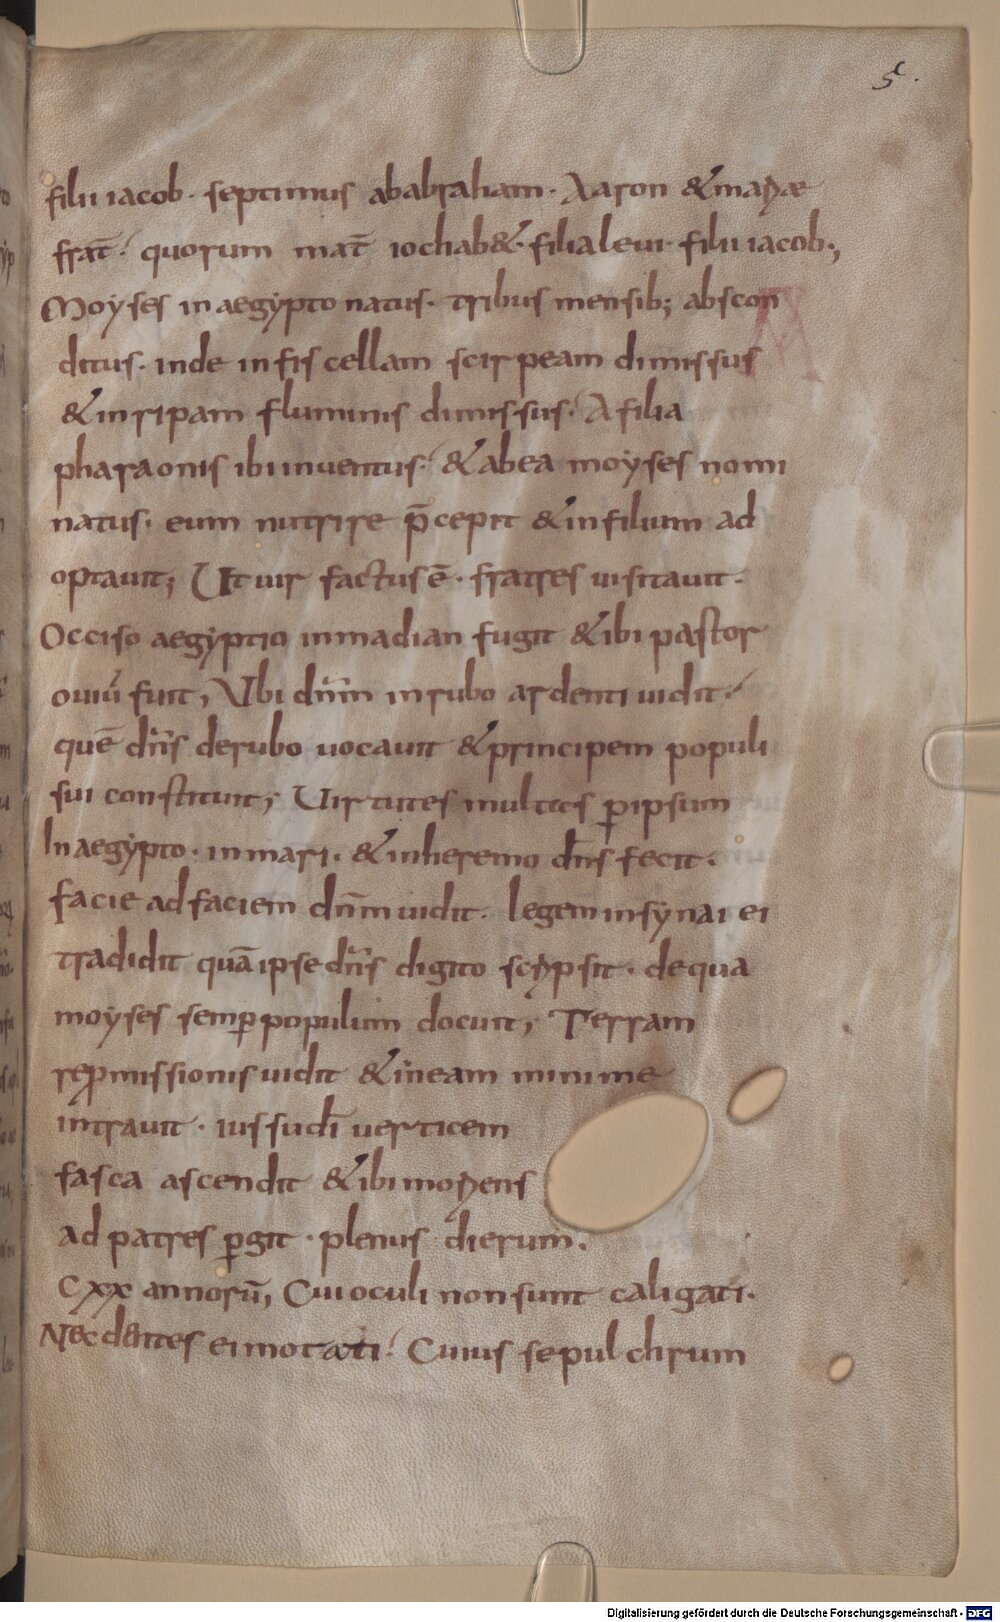 5.
filii iacob· septimus ababraham· Aaron &mariae
frat̄· quorum mat̄ iochab&· filialeui· filii iacob;
Moyses inaegypto natus· tribus mensib; abscon
ditus· inde infiscellam scirpeam dimissus
&inripam fluminis dimissus· Afilia
pharaonis ibiinuentus· &abea moyses nomi
natus· eum nutrire p̄cepit &infilium ad
optauit; Ut uir factusē· fratres uisitauit·
Occiso aegyptio inmadian fugit &ibi pastor
ouiū fuit, Ubi dn̄m inrubo ardenti uidit·
quē dn̄s derubo uocauit &principem populi
sui constituit; Uirtutes multas ꝑipsum
Inaegypto· inmari· &inheremo dn̄s fecit·
facie adfaciem dn̄m uidit· legem insynai ei
tradidit quā ipse dn̄s digito scripsit· dequa
moyses semꝑ populum docuit; Terram
repromissionis uidit &ineam minime
intrauit· iussu dī uerticem
fasca ascendit &ibi moriens
ad patres ꝑgit· plenus dierum.
CXX annorū, Cuioculi nonsunt caligati·
Nec dentes eimotati· Cuius sepulchrum
Digitalisierung gefördert durch die Deutsche Forschungsgemeinschaft - DFG